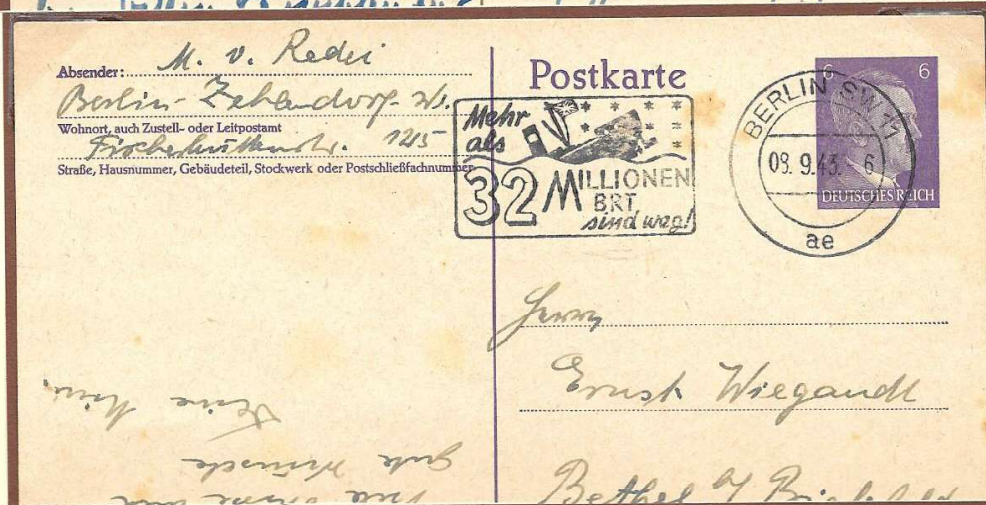 Absender: M. v. Redei
Berlin-Zehlendorf-We.
Wohnort, auch Zustell- oder Leitpostamt
Fischerhüttenstr. 125
Straße, Hausnummer, Gebäudeteil, Stockwerk oder Postschließfachnummer
Postkarte
Mehr
als
32 MILLIONEN
BRT
sind weg!
BERLIN SW 11
08.9.43. 6
ae
6 6
DEUTSCHES REICH
Herrn
Ernst Wiegandt
Bethel b/ Bielefeld
gute Wünsche
Deine